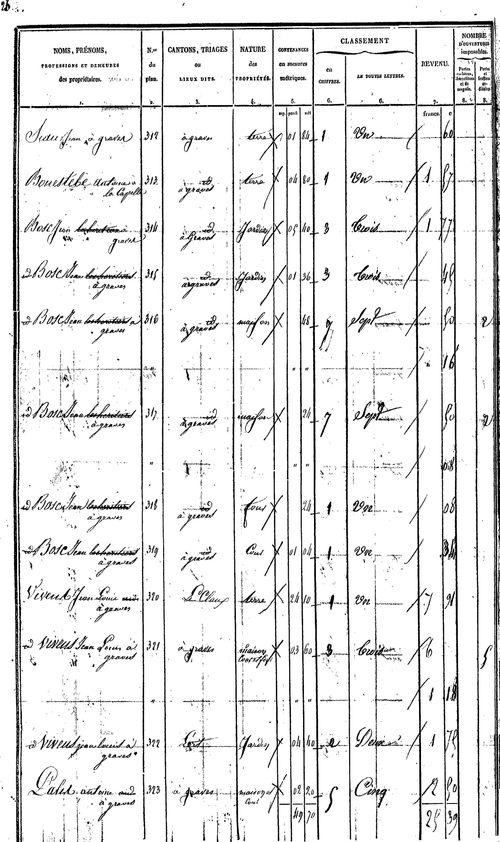 NOMS, PRÉNOMS,
PROFESSIONS ET DEMEURES
des propriétaires.
N.os
du
plan.
CANTONS, TRIAGES
ou
LIEUX DITS.
NATURE
des
PROPRIÉTÉS.
CONTENANCES
en mesures
métriques.
CLASSEMENT
en
CHIFFRES.
EN TOUTES LETTRES.
REVENU.
NOMBRE
D'OUVERTURES
imposables.
1. 2. 3. 4. 5. 6. 6. 7. 8. 8.
francs. c
Jean à graves 312 à graves terre 01 84 1 Un 60
Antoine à 313 id terre 04 80 1 Un 1 57
la Capelle à graves
Bosc Jean 314 id Jardin 05 40 3 Trois 1 77
graves à graves
id Bosc Jean 315 id Jardin 01 36 3 Trois 45
à graves à graves
id Bosc Jean à 316 id maison 48 7 Sept 50 2
graves à graves
16
id Bosc Jean 317 id maison 24 7 Sept 50 2
à graves à graves
08
id Bosc Jean 318 id four 24 1 Un 08
à graves à graves
id Bosc Jean 319 id Cour 01 04 1 Un 34
à graves à graves
Vivens Jean Louis 320 terre 24 10 1 Un 7 91
à graves
id Vivens Jean Louis à 321 à graves maison 03 60 3 Trois 6 5
graves
1 18
id Vivens jean louis à 322 Jardin 04 40 2 Deux 1 78
graves
antoine 323 à graves maison et 02 20 5 Cinq 12 50
à graves Cour
49 70 25 39